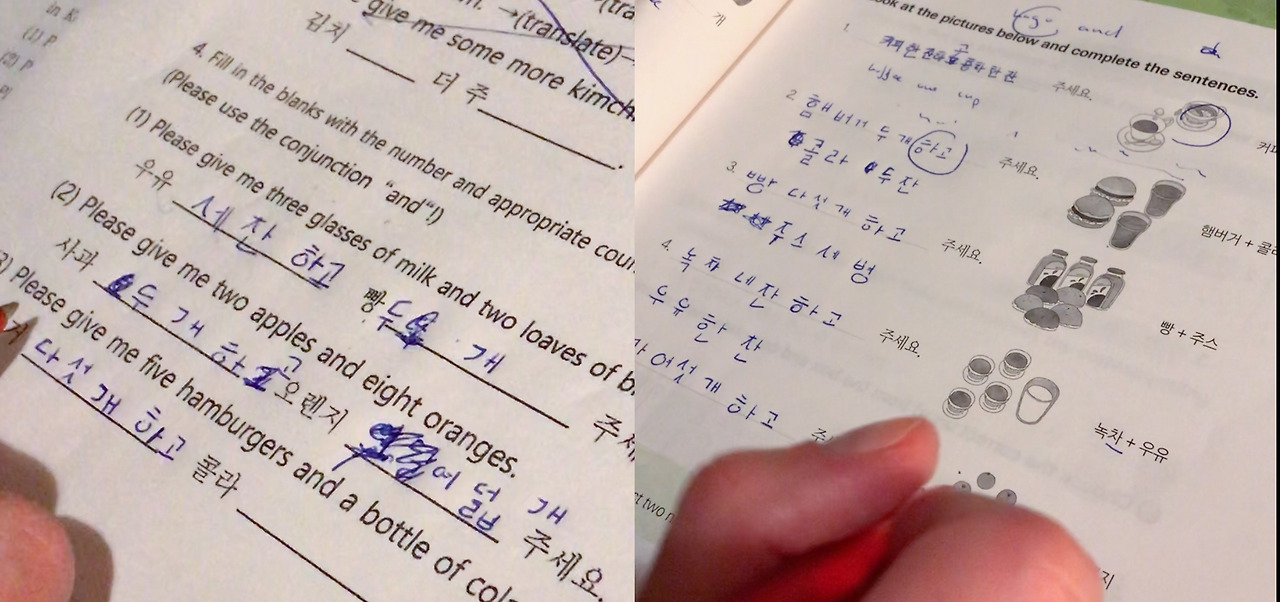 give me some more kimch
(translate)→
김치 ______ 더 주 ______.
4. Fill in the blanks with the number and appropriate coun
(Please use the conjunction "and"!)
(1) Please give me three glasses of milk and two loaves of b
우유 세 잔 하고 빵 두 개 주세
(2) Please give me two apples and eight oranges.
사과 두 개 하고 오렌지 여덟 개 주세요.
) Please give me five hamburgers and a bottle of cola
다섯 개 하고 콜라
개
ook at the pictures below and complete the sentences.
and
1. 주세요.
coffee one cup
커피
2. 햄버거 두 개 하고 주세요.
콜라 두 잔
햄버거 + 콜라
3. 빵 다섯 개 하고 주세요.
주스 세 병
빵 + 주스
4. 녹차 네 잔 하고 주세요.
우유 한 잔
녹차 + 우유
여섯 개 하고 주
지